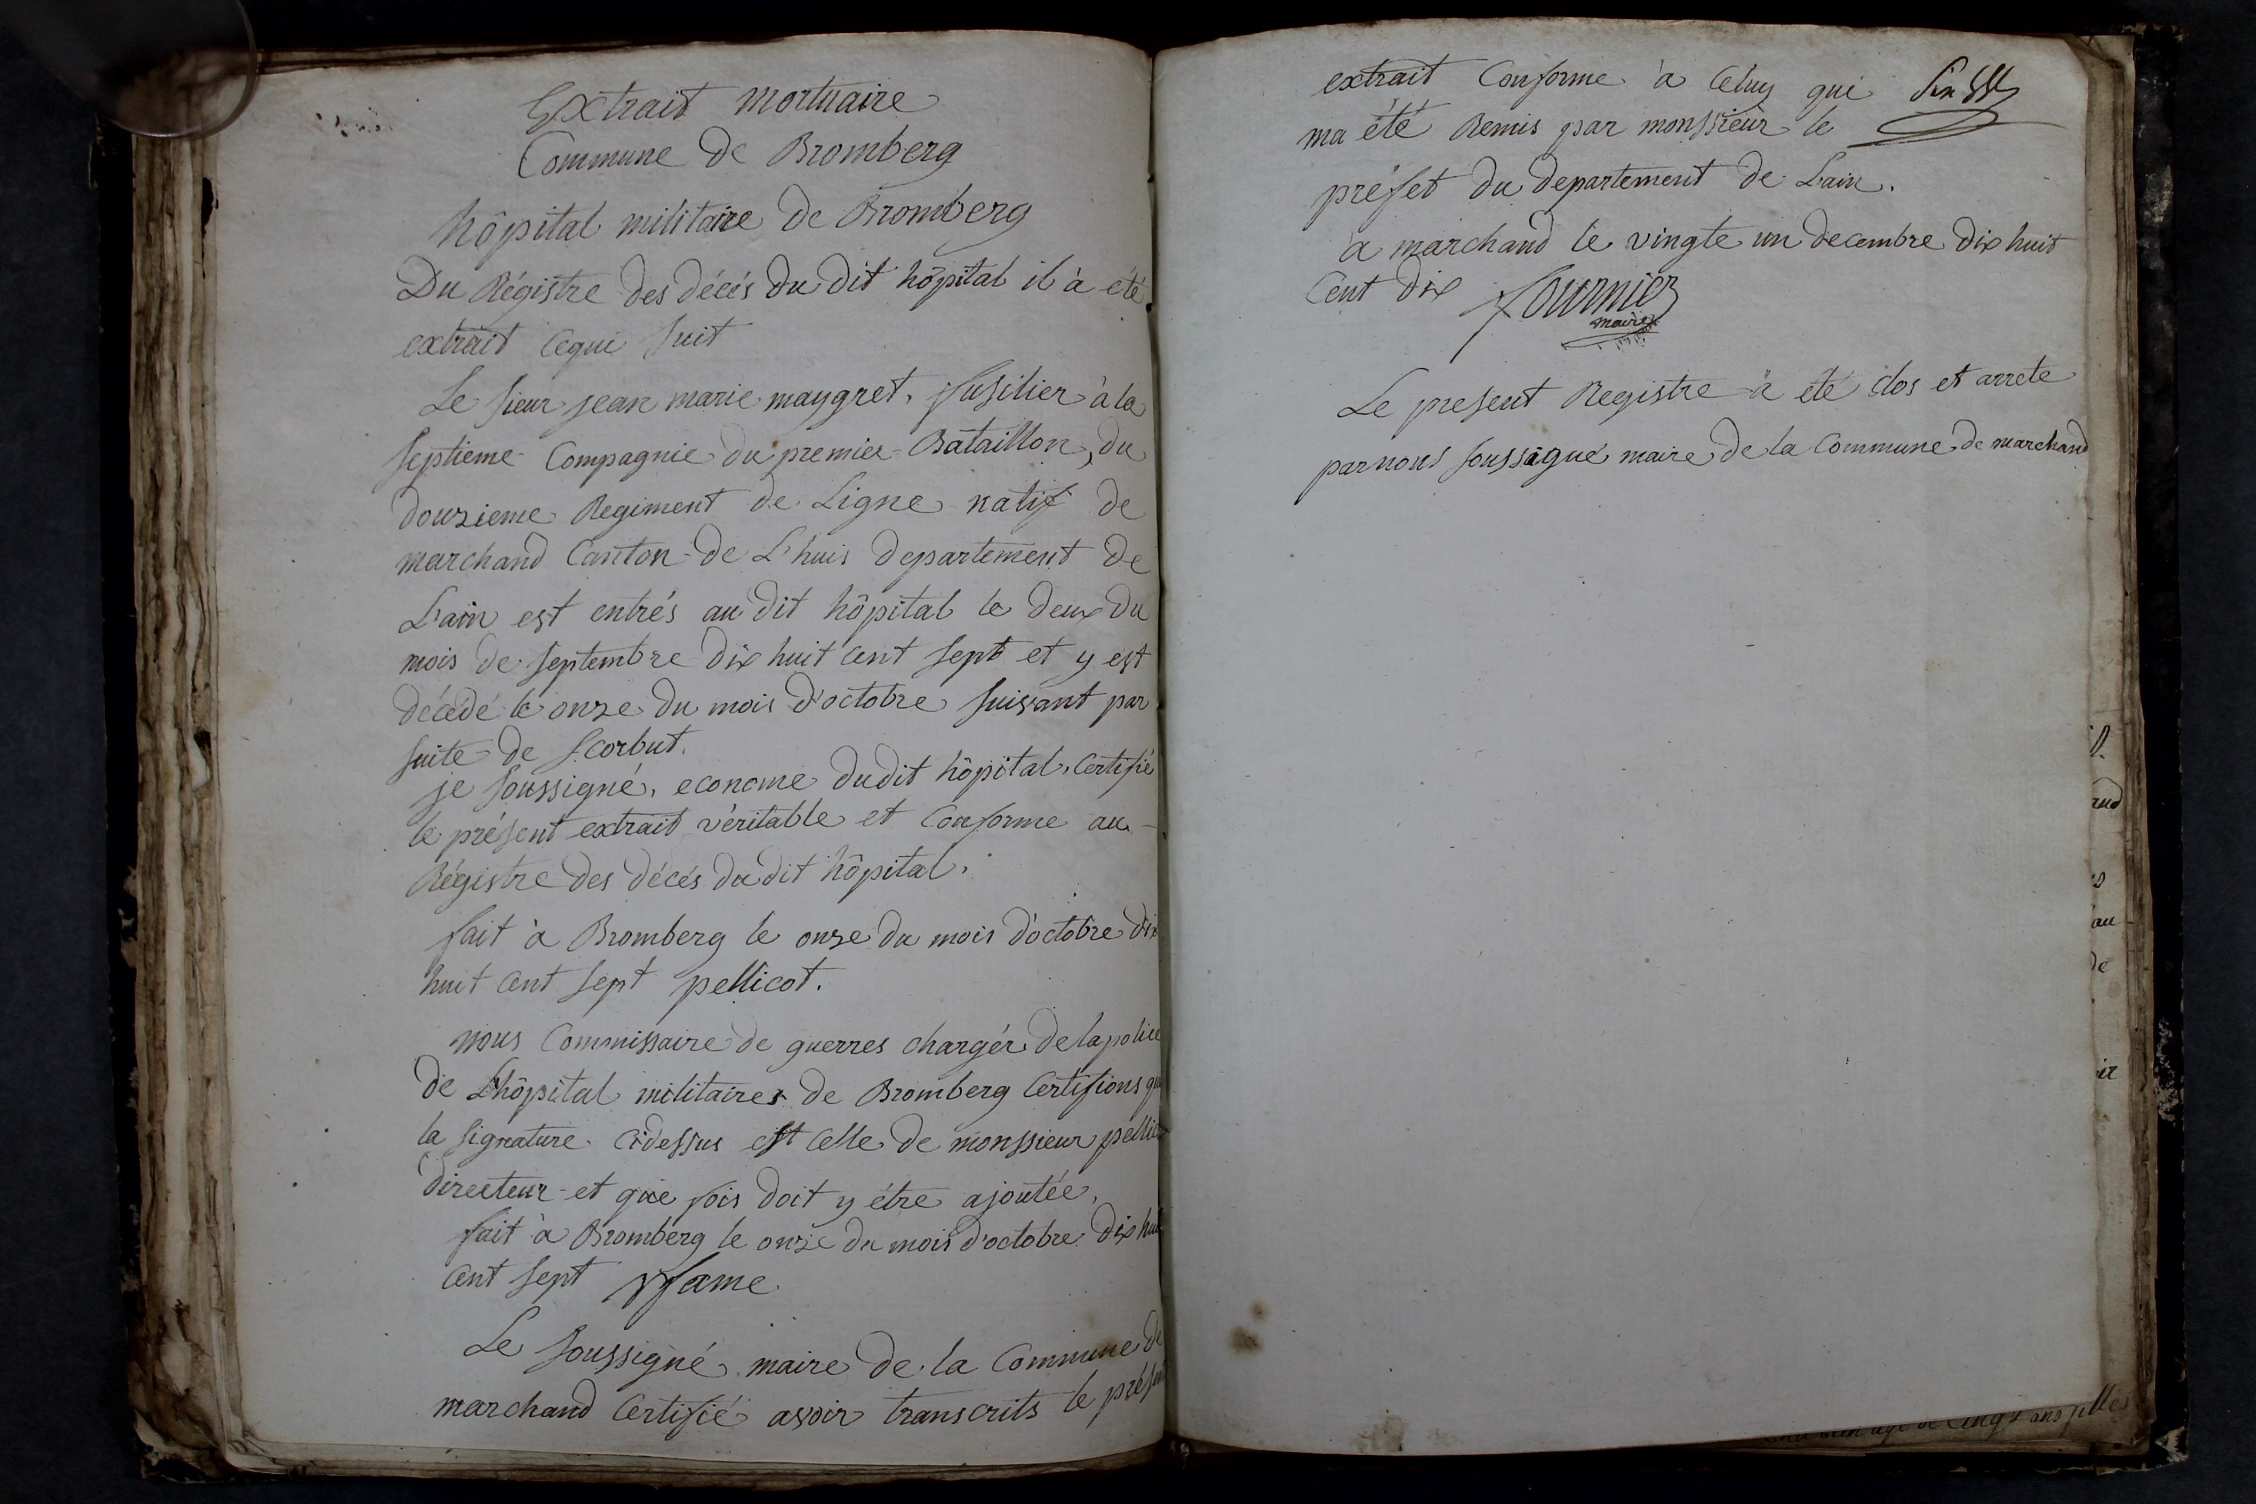 Extrait mortuaire
Commune de Bromberg
hôpital militaire de Bromberg
Du Régistre des décés du dit hôpital il à eté
extrait cequi suit
Le sieur jean marie maygret, fusilier à la
septieme Compagnie du premier Bataillon, du
douzieme Regiment de Ligne natif de
marchand Canton de L'huis departement de
L'ain est entrés au dit hôpital le deux du
mois de septembre dix huit cent sept et y est
décédé le onze du mois d'octobre suivant par
suite de scorbut.
je soussigné, econome dudit hôpital, certifié
le présent extrait véritable et conforme au
Régistre des décés du dit hôpital.
fait à Bromberg le onze du mois d'octobre dix
huit cent sept pellicot.
nous Commissaire de guerres chargér de la police
de L'hôpital militaires de Bromberg Certifions que
la signature cidessus est celle de monssieur pellicot
directeur et que fois doit y étre ajoutée,
fait à Bromberg le onze du mois d'octobre dix huit
cent sept
Le soussigné maire de la Commune de
marchand Certifié avoir transcrits le présent
extrait Conforme à Celuy qui
ma été Remis par monssieur le
préfet du departement de L'ain.
a marchand le vingte un decembre dix huit
Cent dix fournier
maire
Le present Registre à eté clos et arrete
par nous soussigné maire de la Commune de marchand